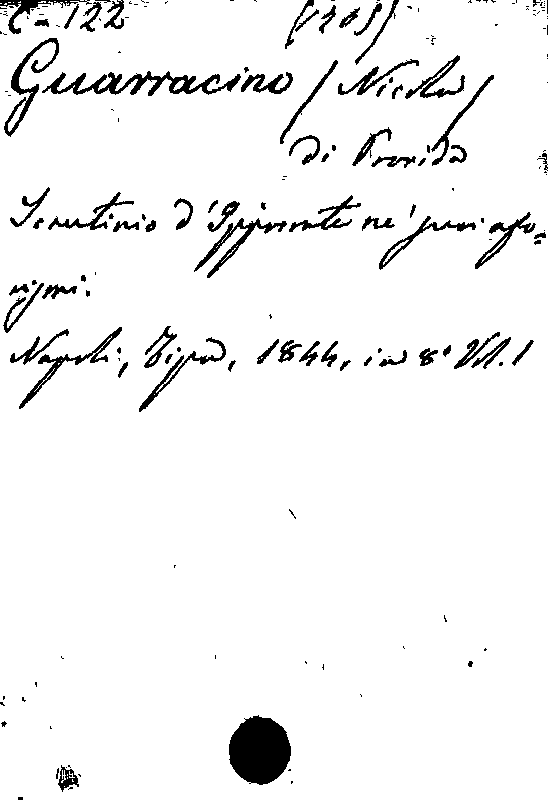 C-122 (1205)
Guarracino (Nicola)
di Provida
Scrutinio d'Ippocrate ne' suoi afo=
rismi.
Napoli, Tipa, 1844, in 8° Vol. 1